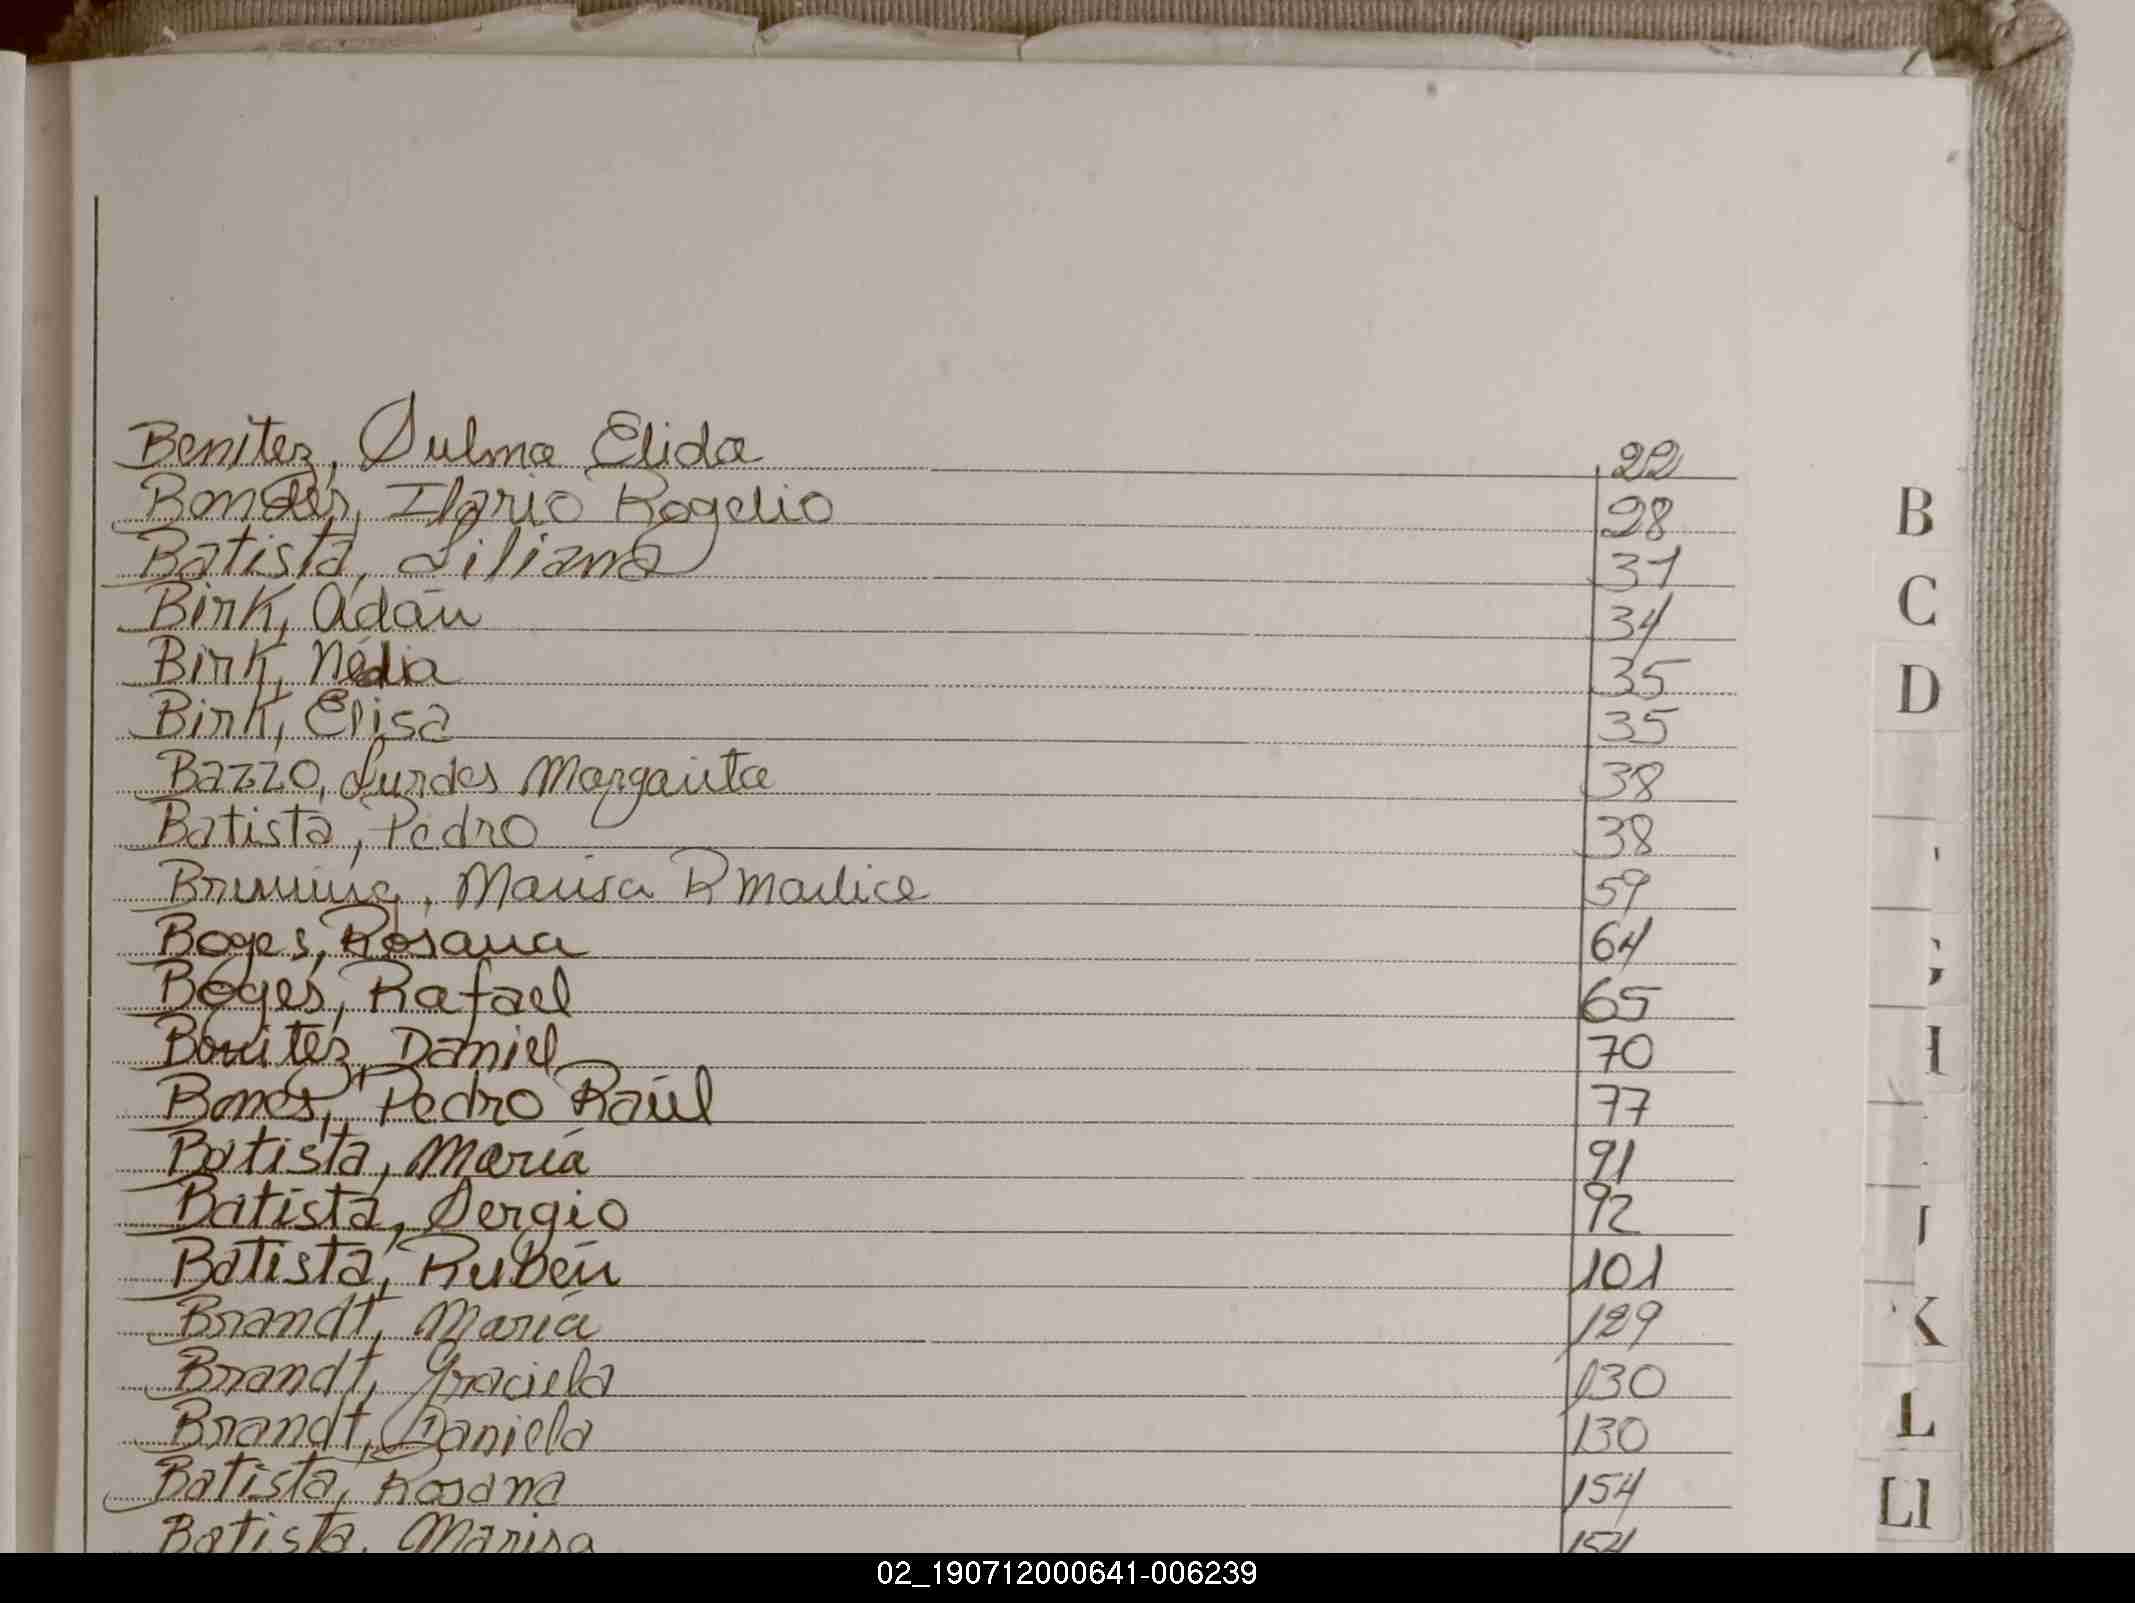 Benitez, Sulma Elida 22
Ilario Rogelio 28
Batista, Liliana 31
Birk, Adán 34
Birk, Nédia 35
Birk, Elisa 35
Bazzo, Lurdes Margarita 38
Batista, Pedro 38
Marisa R Marlice 59
Boges, Rosana 64
Boges, Rafael 65
Benitez, Daniel 70
Bones, Pedro Raúl 77
Batista, María 91
Batista, Sergio 92
Batista, Rubén 101
Brandt, María 129
Brandt, Graciela 130
Brandt, Daniela 130
Batista, Rosana 154
Batista, Marisa 154
B
C
D
K
L
Ll
02_190712000641-006239